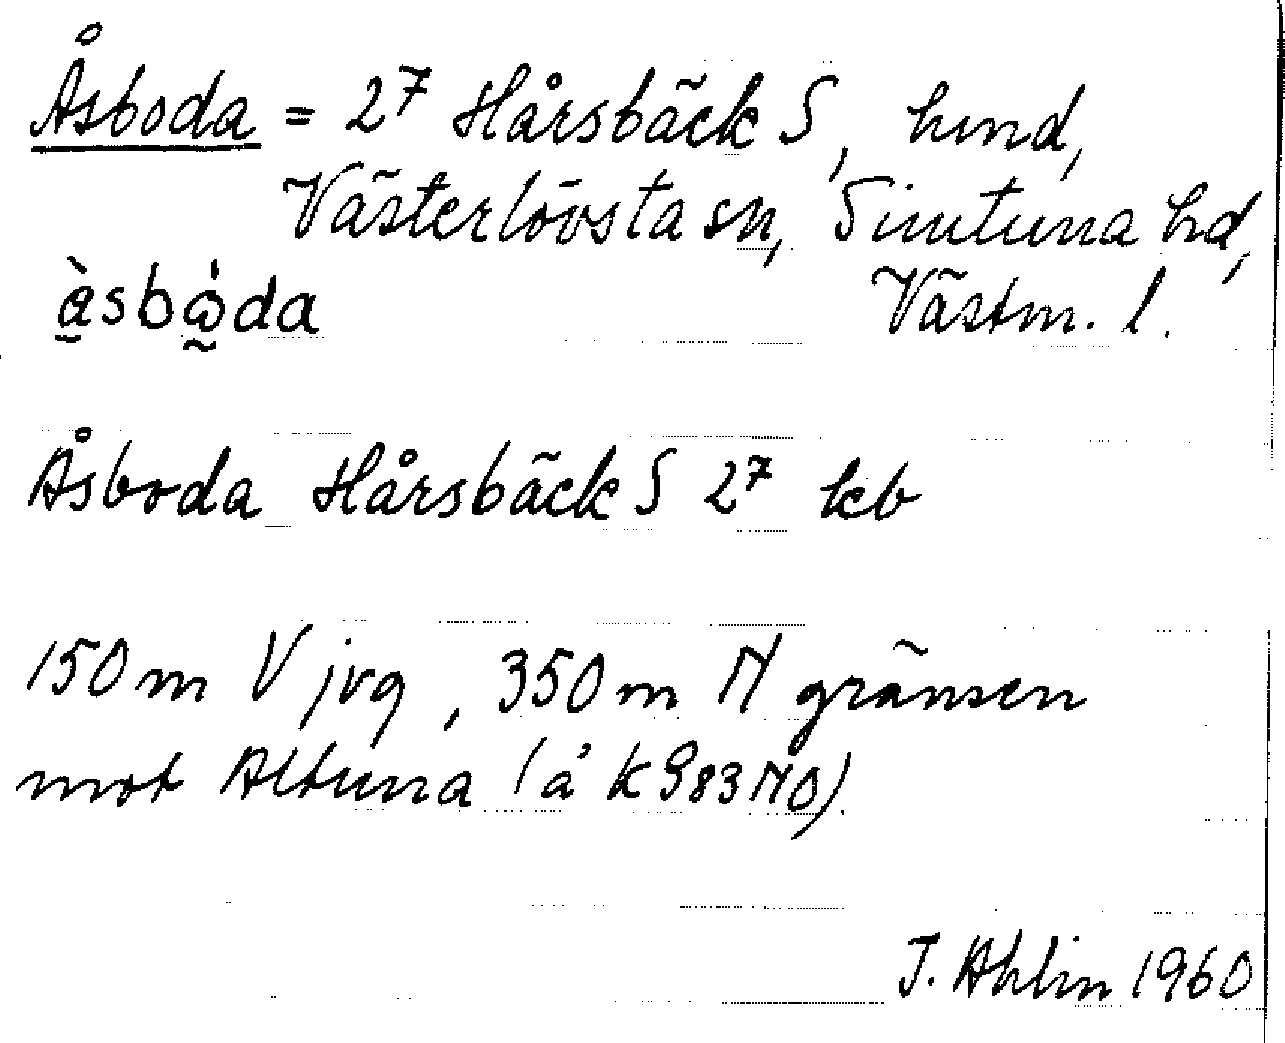 Åsboda = 2⁷ Hårsbäck S, hmd,
Västerlövsta sn, Simtuna hd,
àsbòda Västm. l.
Åsboda Hårsbäck S 2⁷ kb
150 m V jvg, 350 m N gränsen
mot Altuna (å k 983 NO).
J. Ahlin 1960